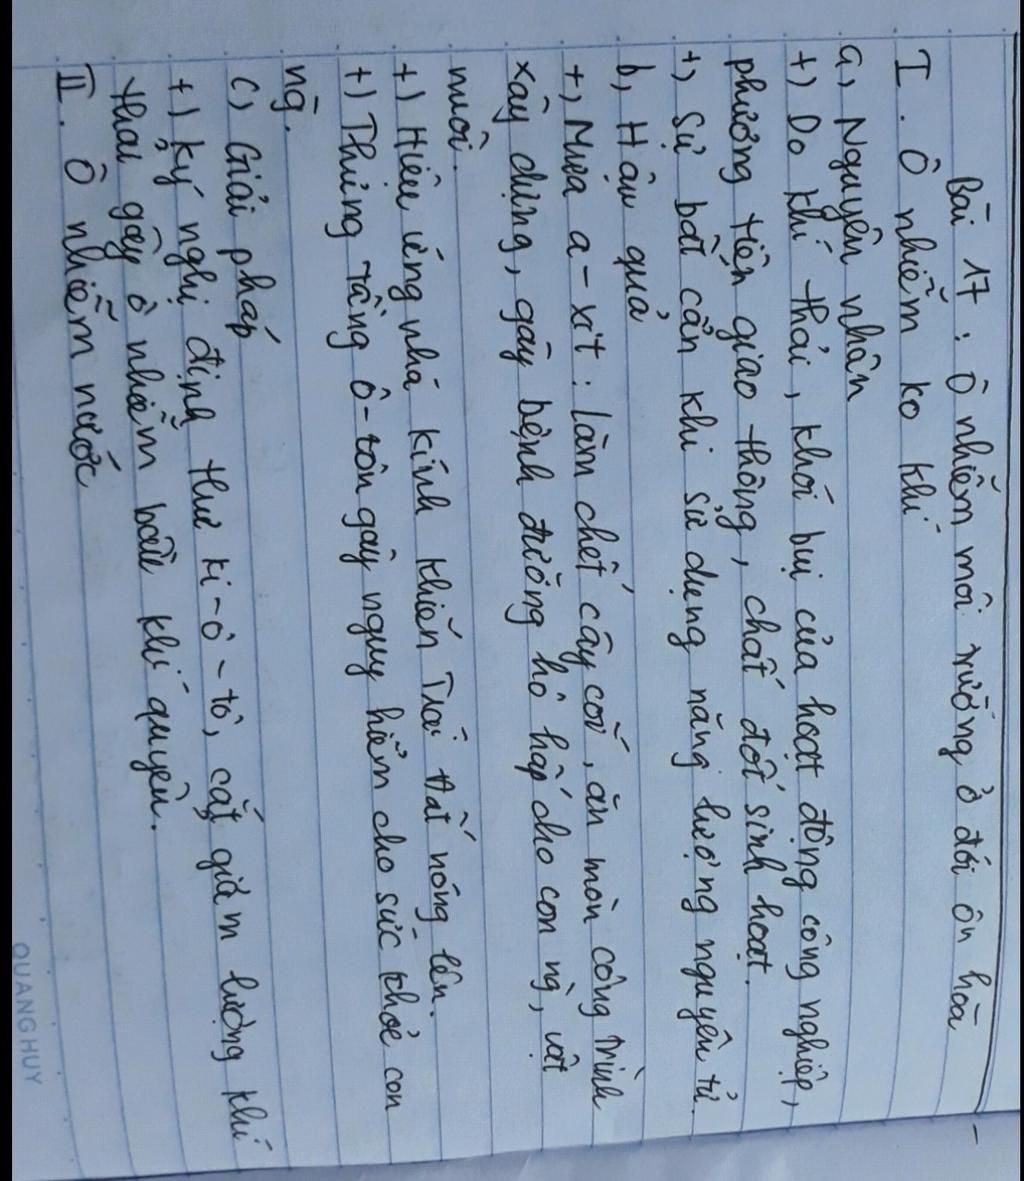 Bài 17 : Ô nhiễm môi trường ở đới ôn hòa
I . Ô nhiễm ko khí
a, Nguyên nhân
+) Do khí thải, khói bụi của hoạt động công nghiệp,
phương tiện giao thông, chất đốt sinh hoạt.
+, Sự bất cẩn khi sử dụng năng lượng nguyên tử.
b, Hậu quả
+, Mưa a-xit : làm chết cây cối, ăn mòn công trình
xây dựng, gây bệnh đường hô hấp cho con ng, vật
nuôi.
+) Hiệu ứng nhà kính khiến Trái Đất nóng lên.
+) Thủng tầng ô-zôn gây nguy hiểm cho sức khỏe con
ng.
c) Giải pháp
+) Ký nghị định thư Ki-ô-tô, cắt giảm lượng khí
thải gây ô nhiễm bầu khí quyển.
II. Ô nhiễm nước
QUANG HUY